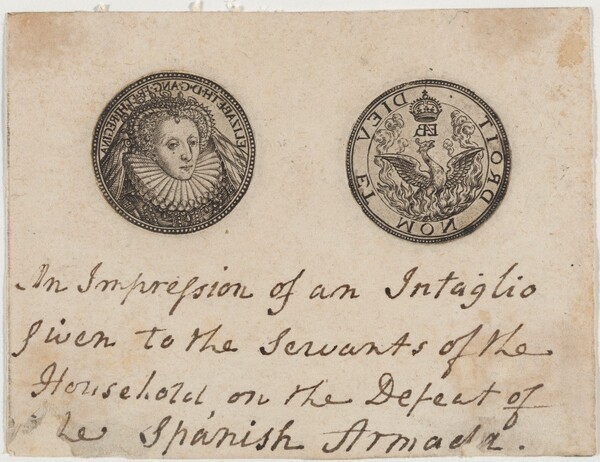 ELIZABETH·D·G·ANG·F·ET·HIB·REGINA
DIEV ET MON DROIT
ER
An Impreſsion of an Intaglio
Given to the Servants of the
Household on the Defeat of
the Spanish Armada.